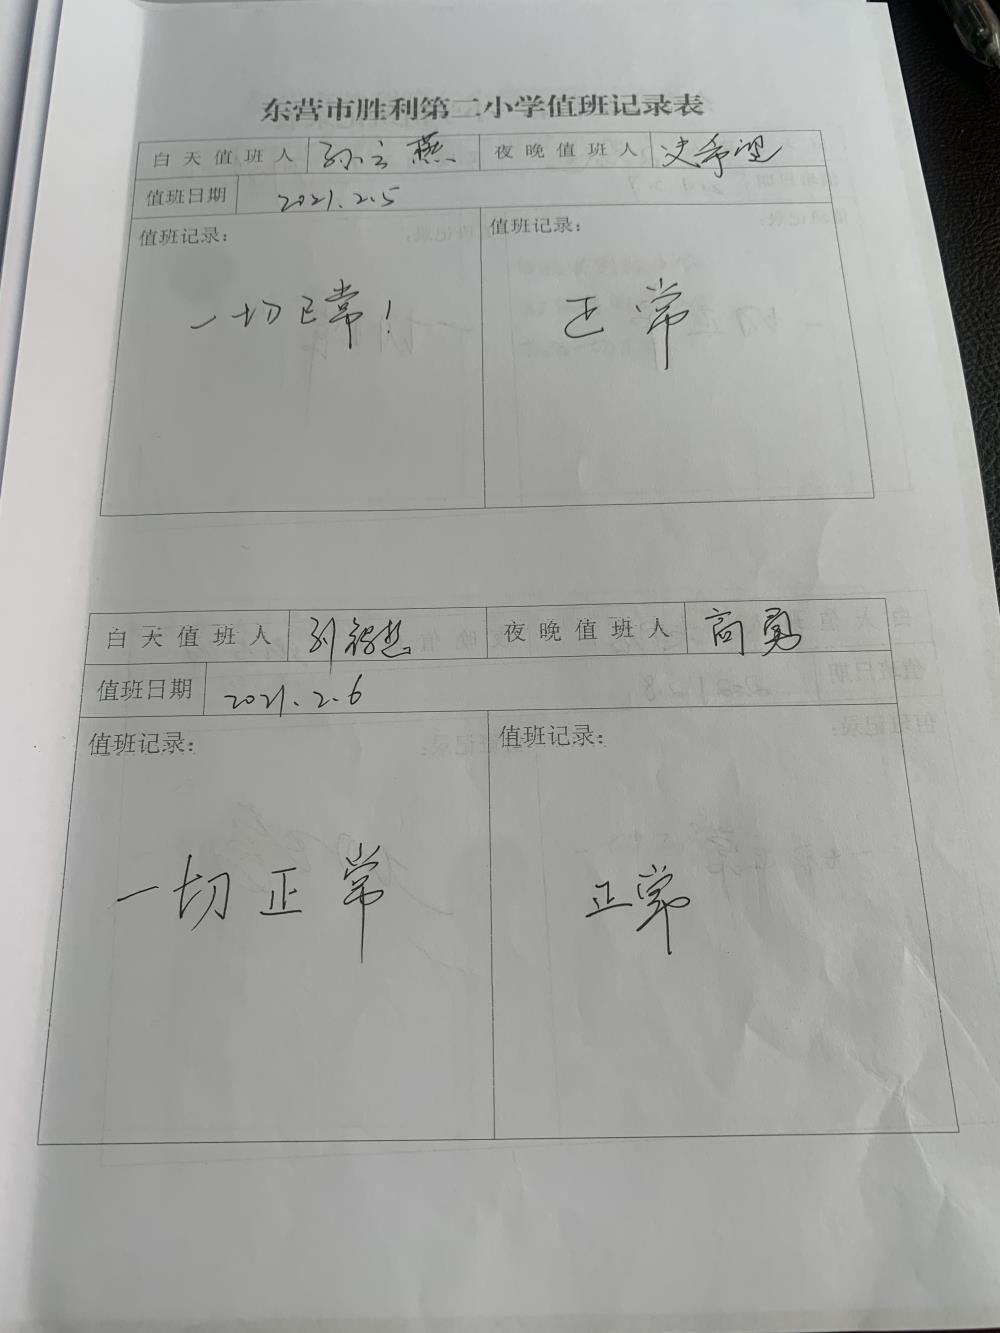 东营市胜利第二小学值班记录表
白天值班人 孙立燕 夜晚值班人 史希望
值班日期 2021.2.5
值班记录: 值班记录:
一切正常! 正常
白天值班人 夜晚值班人 高勇
值班日期 2021.2.6
值班记录: 值班记录:
一切正常 正常